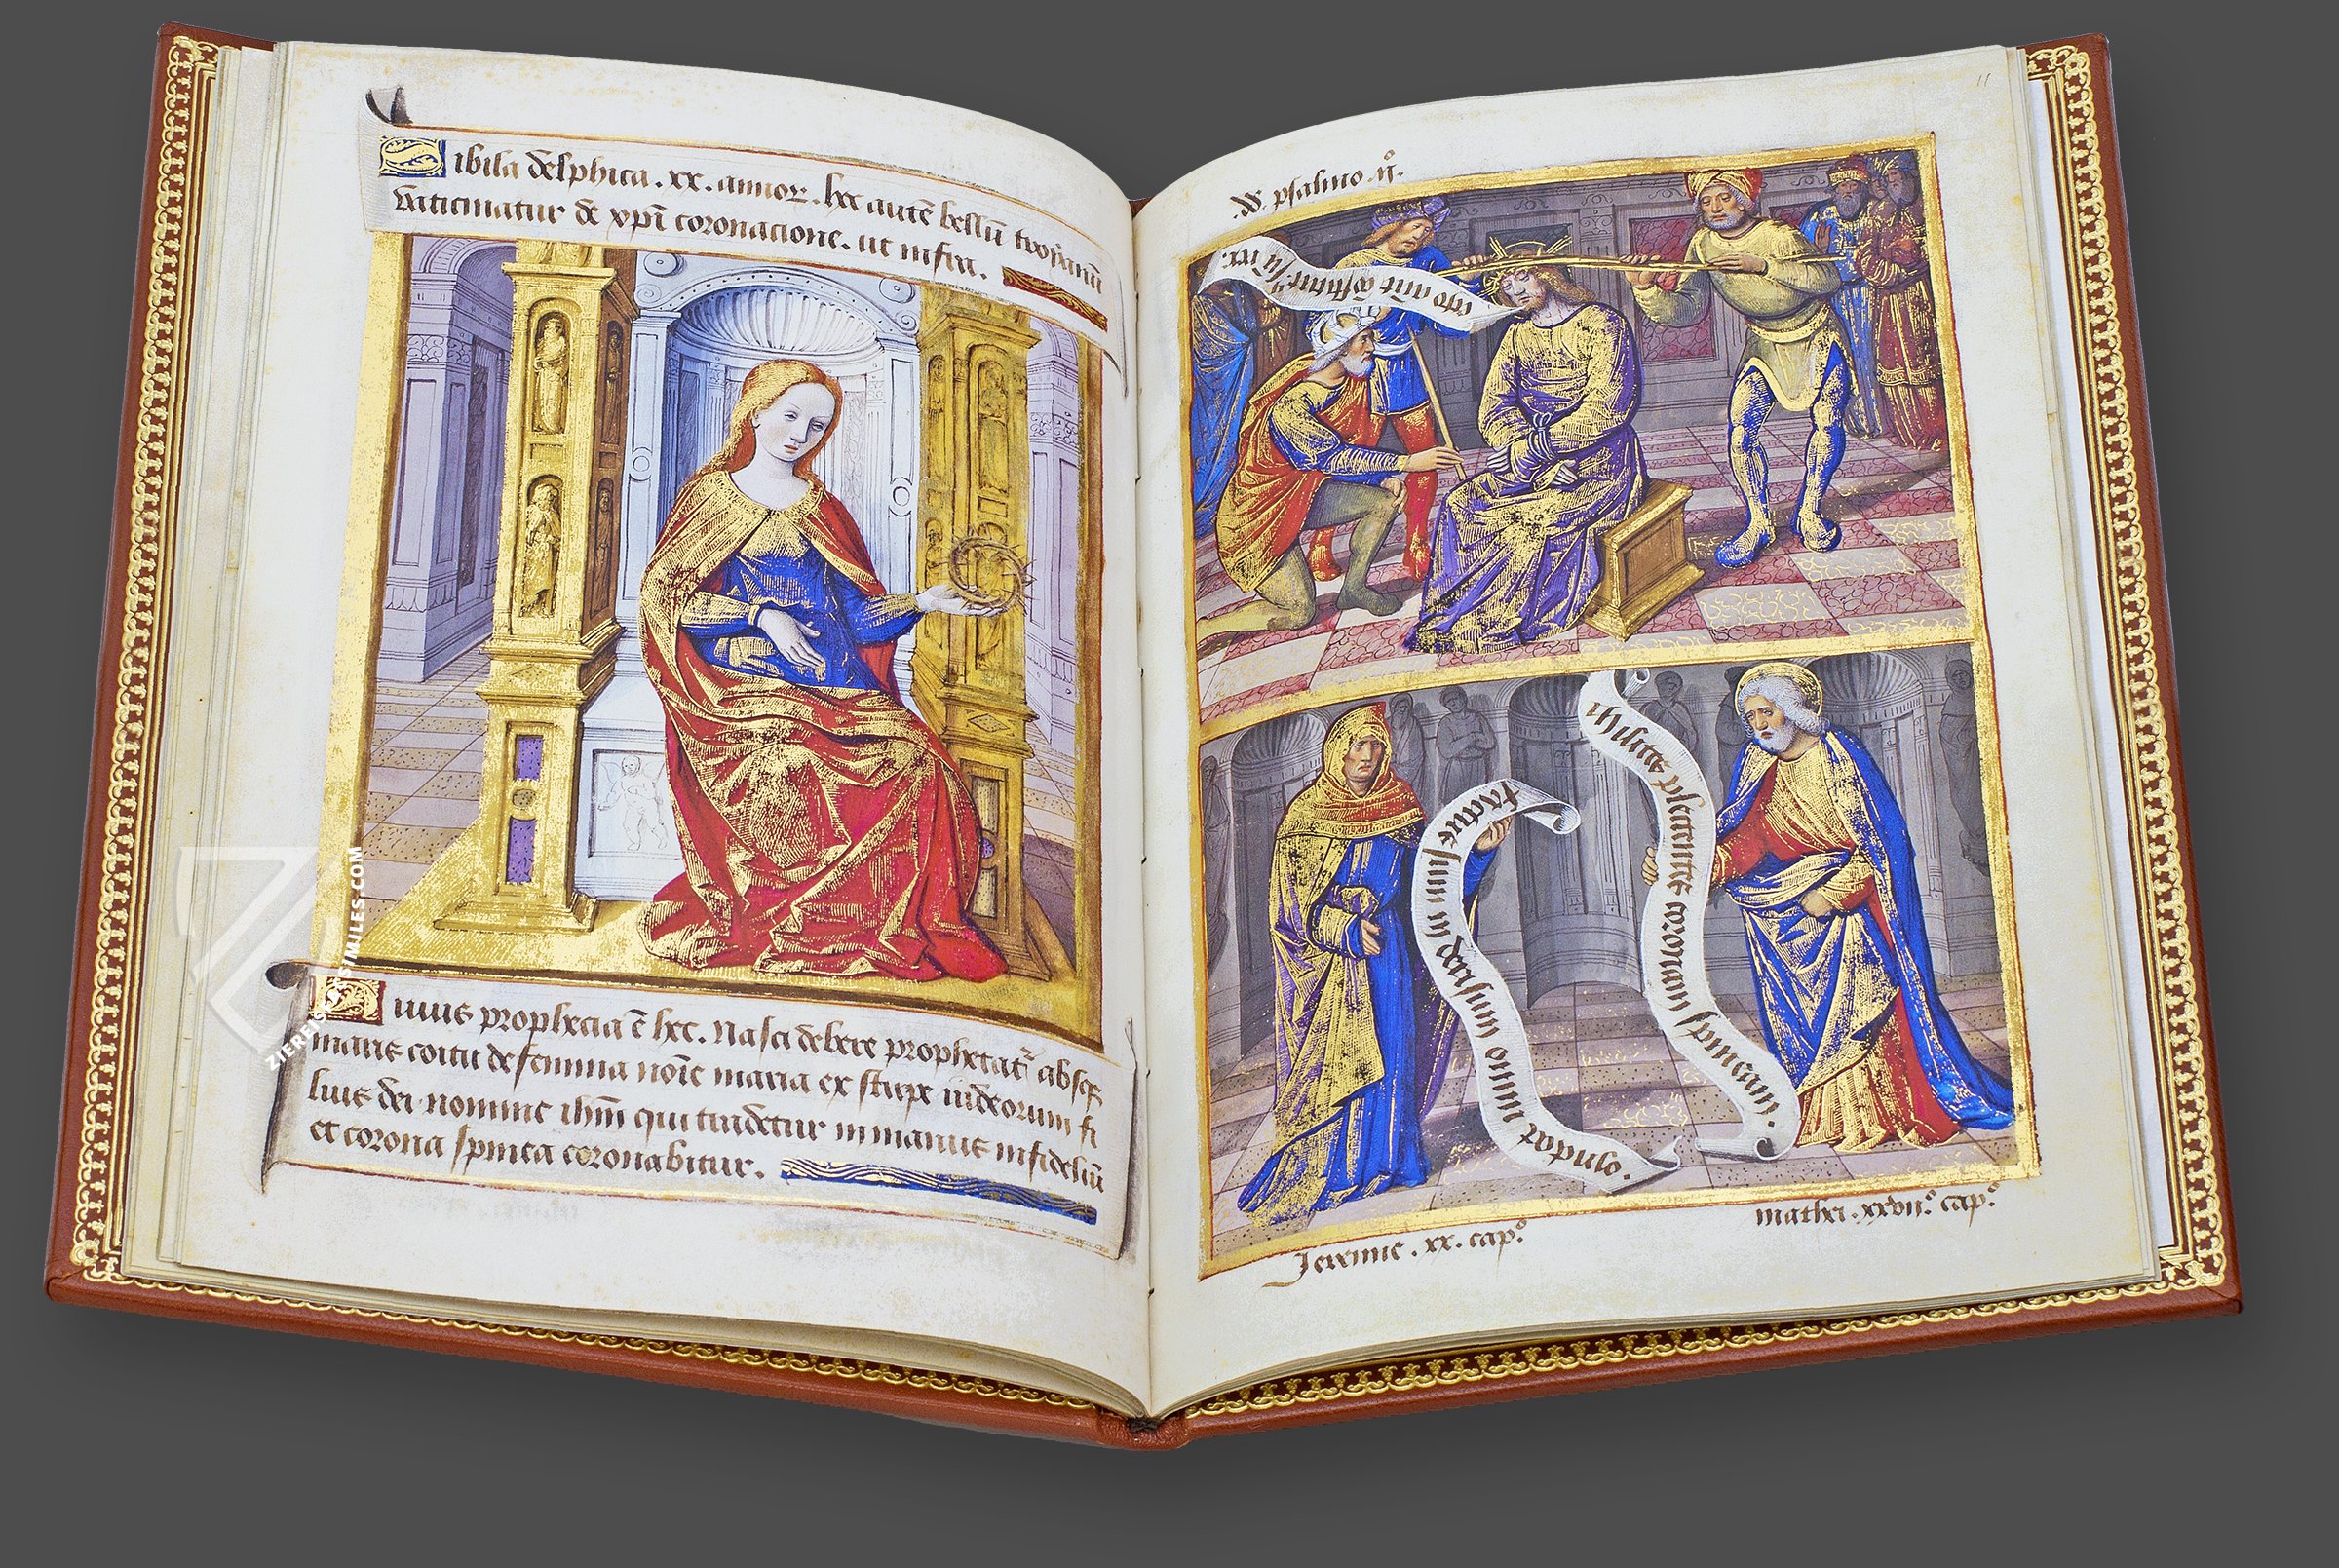 Sibila delphica . xx . annoꝝ . hec autē bellū troyanū
vaticinatur de xp̄i coronacione . ut infra .
uius prophecia ē hec . Nasci debere prophetat᷑ absqꝫ
maris coitu de femina noīe maria ex stirpe iudeorum fi
lius dei nomine ih̄m qui tradetur in manus infideliū
et corona spinea coronabitur .
.DD. psalmo . ij°.
ego aūt ꝯstitut᷒ sū rex .
factus sum in derisum omni populo .
Milites plectentes coronam spineam .
Jeremie . xx . cap°.
mathei . xxvij° . cap°.
11
ZIEREIS FACSIMILES.COM